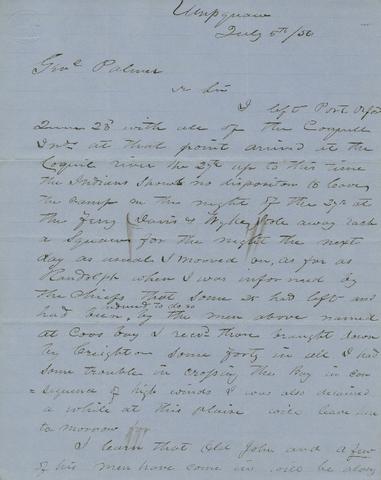 Umpquaw
July 5th /56
Genl Palmer
Sir
I left Port Orford
June 23d with all of the Coquill
Inds at that point arrived at the
Coquil river the 27th up to this time
the Indians Showd no disposition to leave
the Camp on the night of the 27th at
the ferry Davis & Wyke Stole away each
a Squaw for the night the next
day as usual I mooved on, as far as
Randolph when I was informed by
the chiefs that Some 25 had left and
had been induced to do so by the men above named
at Coos bay I recd those brought down
by Creighton Some forty in all I had
Some trouble in crossing the Bay in con
=sequence of high winds I was also detained
a while at this place will leave here
to morrow
I learn that Old John and a few
of his men have come in will be along